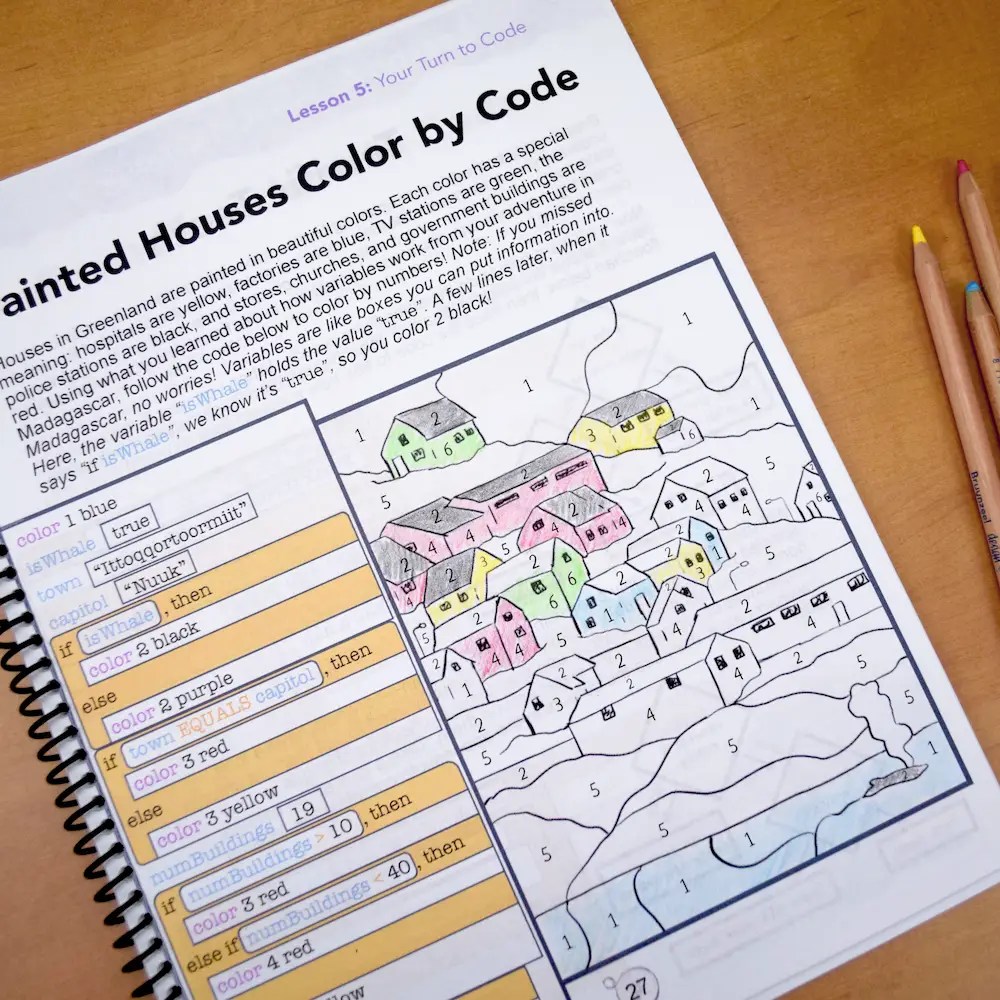 Lesson 5: Your Turn to Code
ainted Houses Color by Code
Houses in Greenland are painted in beautiful colors. Each color has a special
meaning: hospitals are yellow, factories are blue, TV stations are green, the
police stations are black, and stores, churches, and government buildings are
red. Using what you learned about how variables work from your adventure in
Madagascar, follow the code below to color by numbers! Note: If you missed
Madagascar, no worries! Variables are like boxes you can put information into.
Here, the variable "isWhale" holds the value "true". A few lines later, when it
says "if isWhale", we know it's "true", so you color 2 black!
color 1 blue
isWhale true
town "Ittoqqortoormiit"
capitol "Nuuk"
if isWhale, then
color 2 black
else
color 2 purple
if town EQUALS capitol, then
color 3 red
else
color 3 yellow
numBuildings 19
if numBuildings > 10, then
color 3 red
else if numBuildings < 40, then
color 4 red
llow
1
1
1
1
2
1 6
2
3
1
1 6
5
2
2
4
4
2
4
1 4
2
4
4
5
6
2
4
2
3
5
6
2
1
2
1
3
5
5
4
4
5
2
1 4
2
4
2
1
2
3
2
2
4
4
2
5
5
2
5
2
5
5
5
1
5
5
1
1
1
1
27
Bruynzeel
design